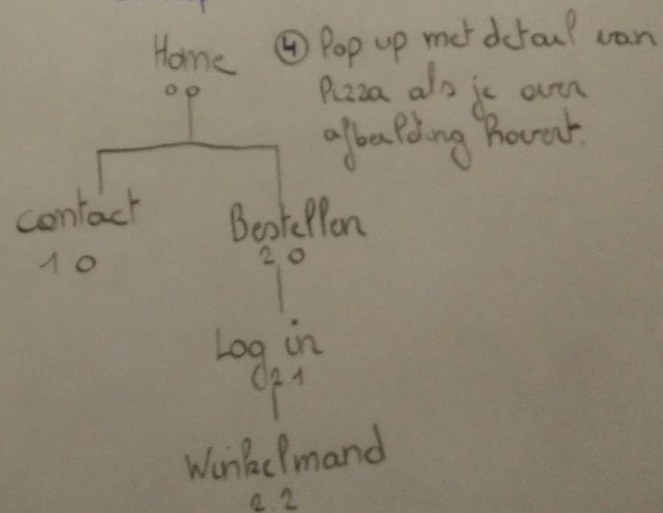 Home
④ Pop up met detail van
Pizza als je over
afbeelding hovert.
0 0
contact
1 0
Bestellen
2 0
Log in
2 1
Winkelmand
2.2